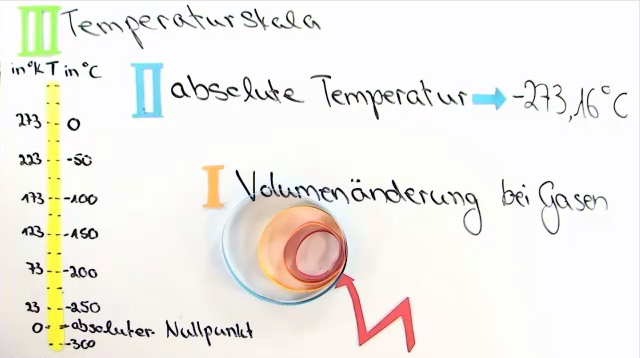 III Temperaturskala
in °K T in °C
II absolute Temperatur → -273,16°C
273 0
223 -50
I Volumenänderung bei Gasen
173 -100
123 -150
73 -200
23 -250
0 absoluter Nullpunkt
-300